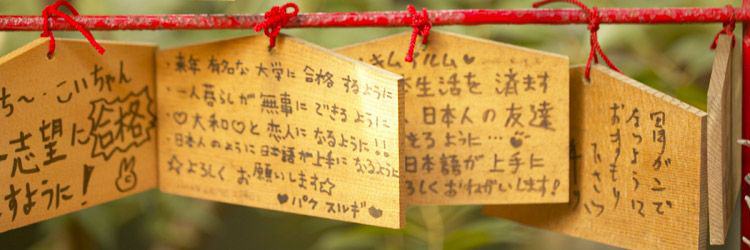 ち〜・こいちゃん
志望に合格
すように!
・来年 有名な 大学に 合格 するように
・一人暮らしが 無事に できるように
・♡大和♡と 恋人に なるように!!
・日本人のように 日本語が上手に なるように
☆よろしく お願いします☆
♥パク スルギ♥
キム ハルム
本生活を 済ます
日本人の 友達
きるように…♥
日本語が 上手に
ろしくおねがいします!